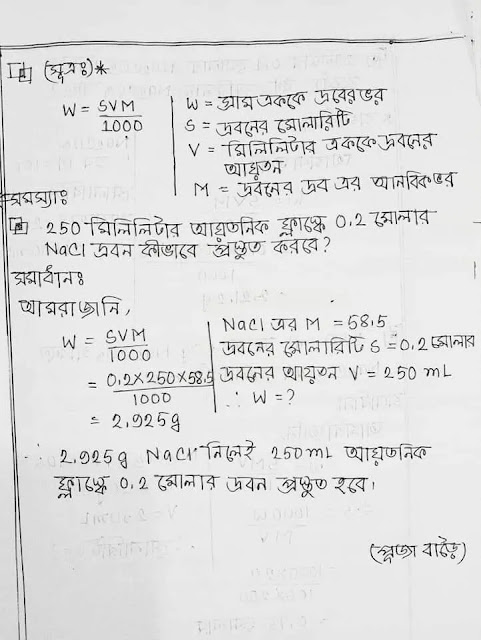 (সূত্রঃ)*
W = SVM/1000
W = গ্রাম এককে দ্রবের ভর
S = দ্রবনের মোলারিটি
V = মিলিলিটার এককে দ্রবনের
আয়তন
M = দ্রবনের দ্রব এর আনবিক ভর
সমস্যাঃ
250 মিলিলিটার আয়তনিক ফ্লাস্কে 0.2 মোলার
NaCl দ্রবন কীভাবে প্রস্তুত করবে?
সমাধানঃ
আমরা জানি,
W = SVM/1000
= 0.2×250×58.5/1000
= 2.925g
NaCl এর M = 58.5
দ্রবনের মোলারিটি S = 0.2 মোলার
দ্রবনের আয়তন V = 250 mL
∴ W = ?
∴ 2.925g NaCl নিলেই 250mL আয়তনিক
ফ্লাস্কে 0.2 মোলার দ্রবন প্রস্তুত হবে।